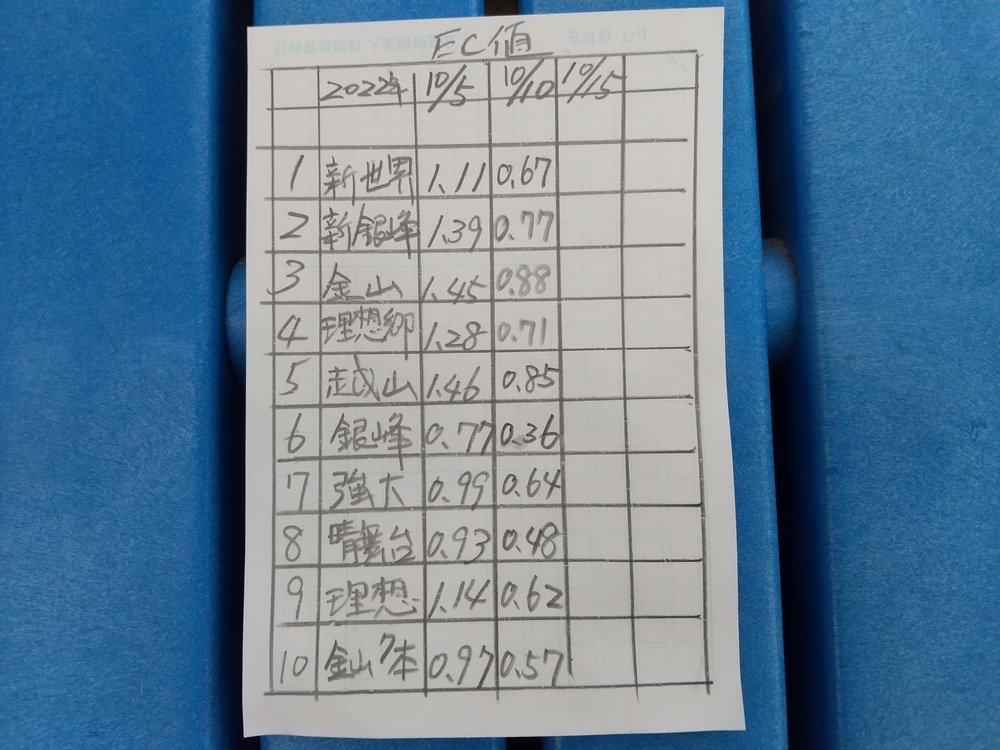 EC値
2022年 10/5 10/10 10/15
1 新世界 1.11 0.67
2 新銀峰 1.39 0.77
3 金山 1.45 0.88
4 理想郷 1.28 0.71
5 越山 1.46 0.85
6 銀峰 0.77 0.36
7 強大 0.99 0.64
8 晴舞台 0.93 0.48
9 理想 1.14 0.62
10 金山7本 0.97 0.57